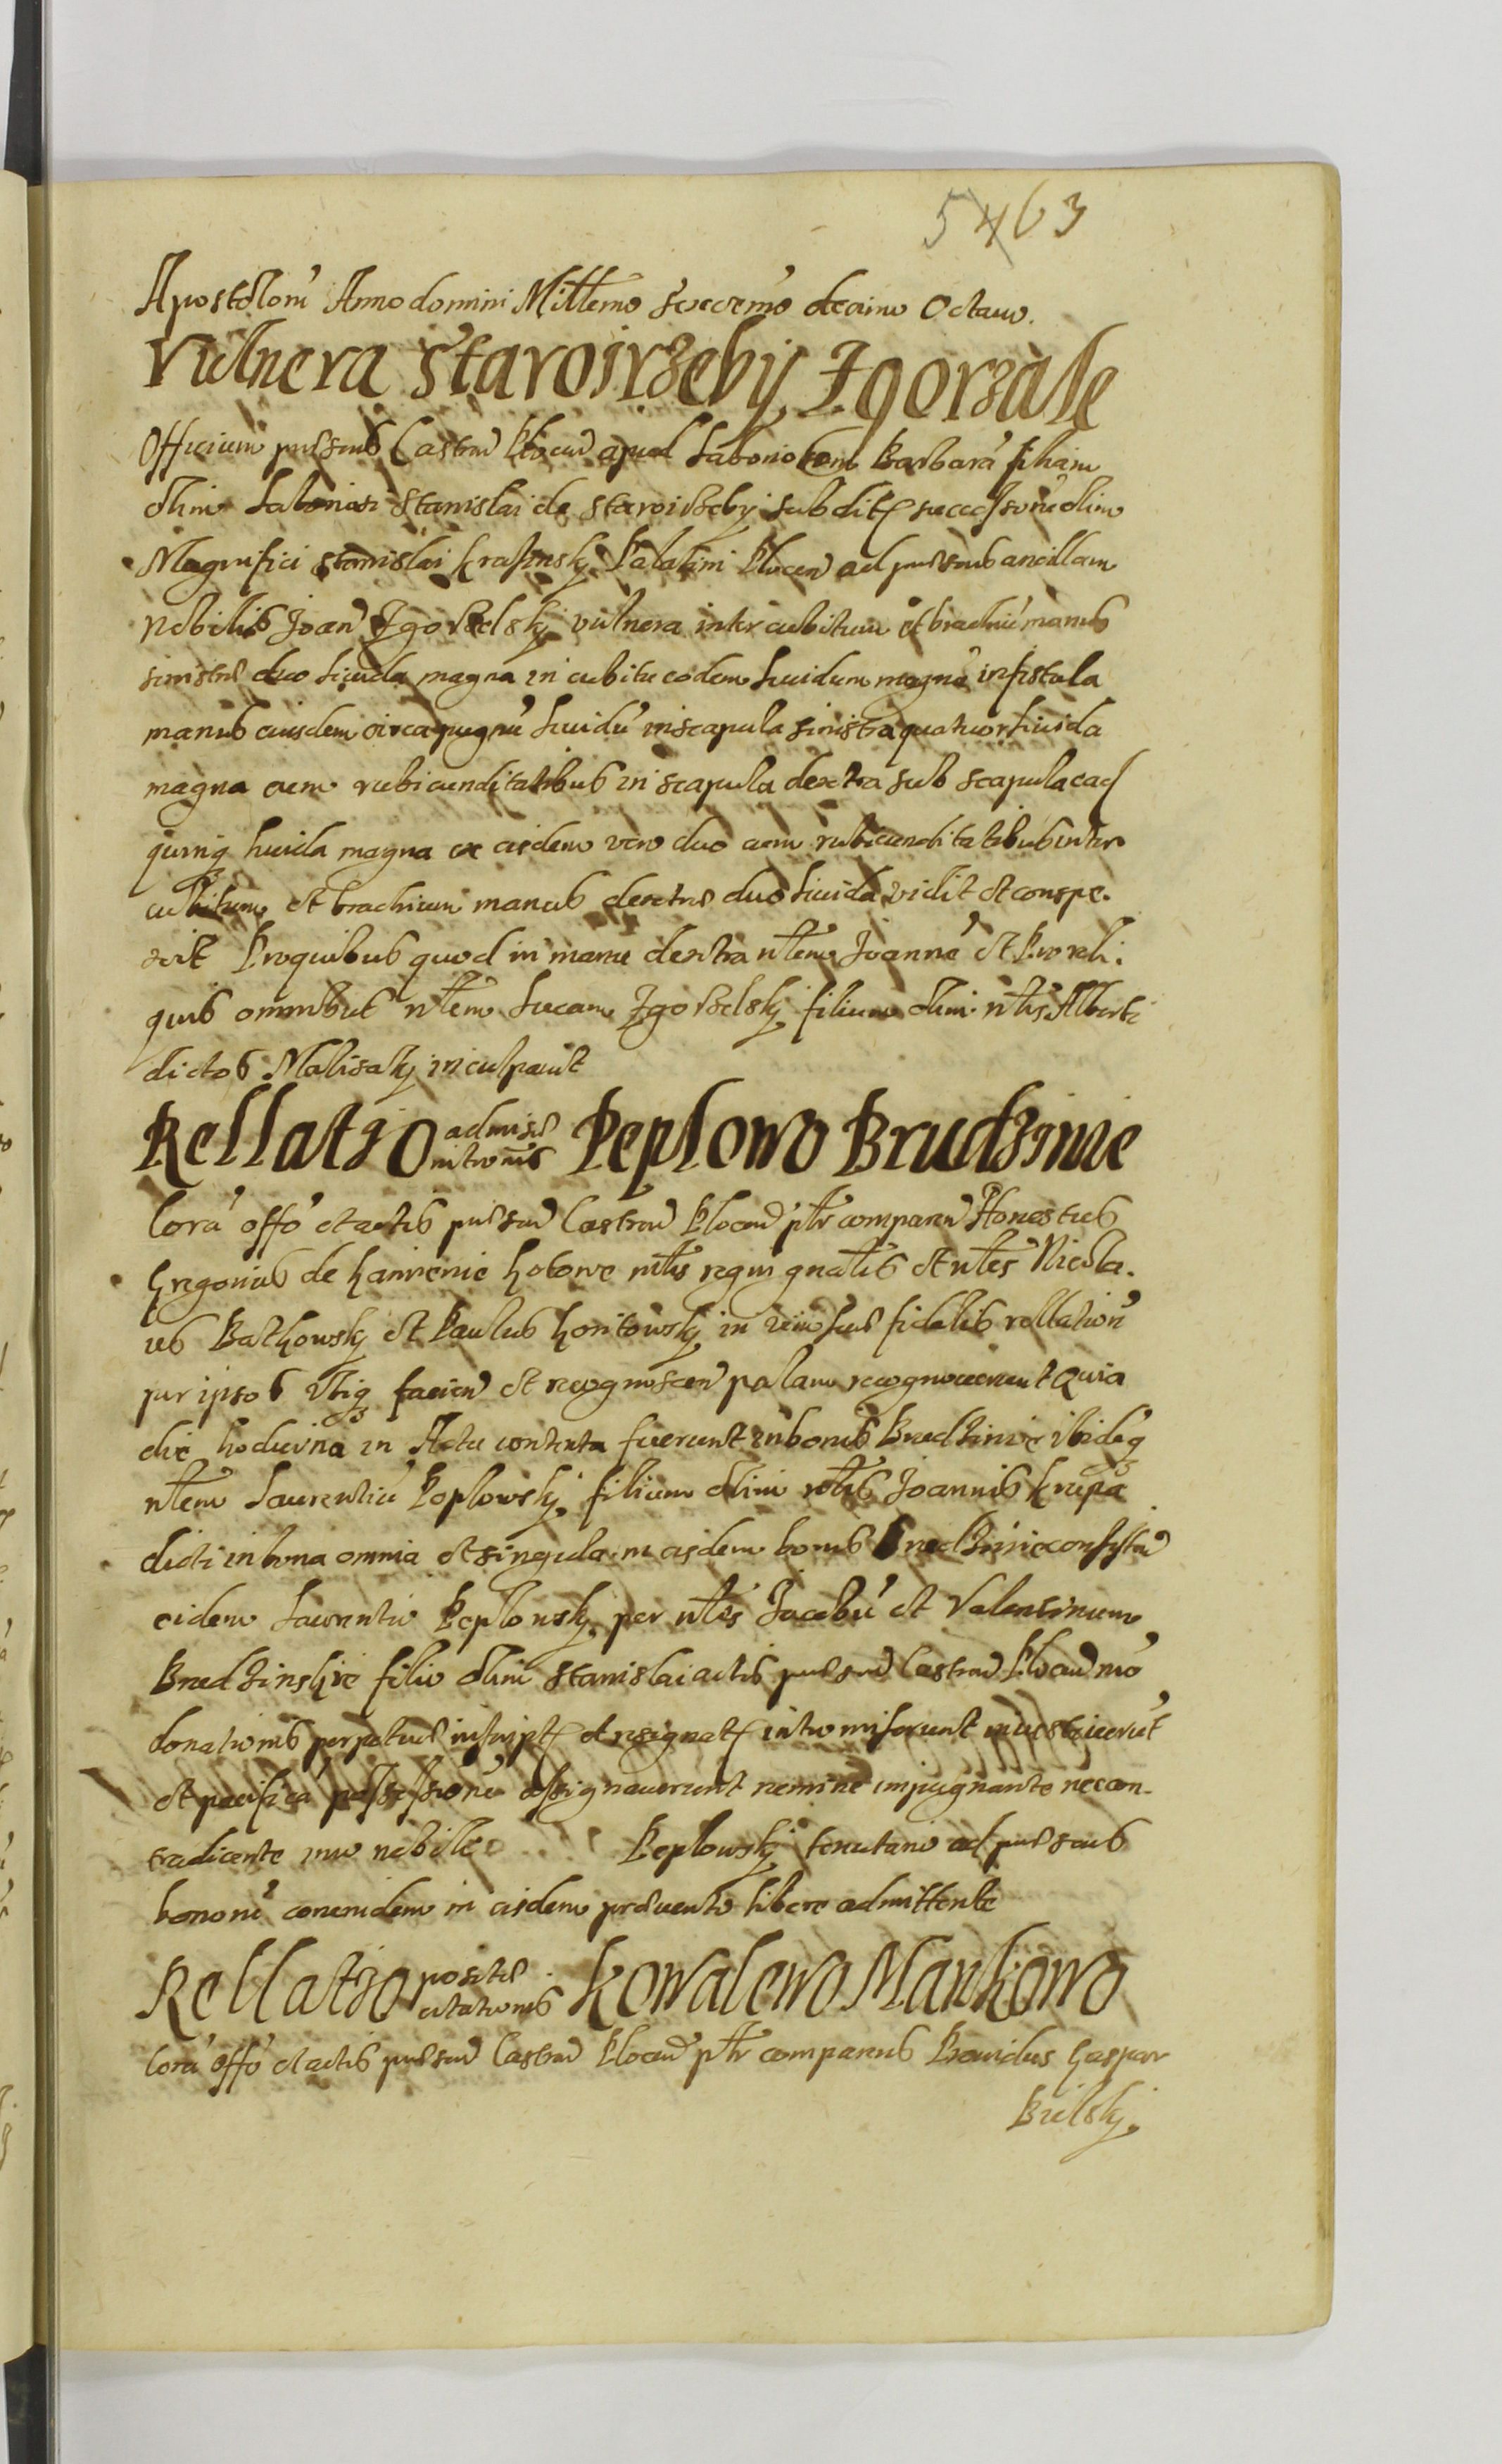 5463
Apostolorū Anno domini Millemo Sexcemo decimo Octauo.
Vulnera Staroirzeby Zgorzale
Officium praesens Castren Plocen apud Laboriosam Barbarā filiam
olim Laboriosi Stanislai de Staroirzeby subdit successorū olim
Magnifici Stanislai Krasinsky Palatini Plocen ad praesens ancillam
Nobilis Joan Zgorzelsky vulnera inter cubitum et brachiū manus
sinistrae duo liuida magna in cubitu eodem liuidum magnū in fistula
manus eiusdem circa pugnū liuidū in scapula sinistra quatuor liuida
magna cum rubicunditatibus in scapula dextra sub scapula ead
quinq liuida magna ex eisdem vero duo cum rubicunditatibus inter
cubitum et brachium manus dextrae duo liuida vidit et conspe.
xit Pro quibus quod in manu dextra nlem Joannē et Pro reli.
quis omnibus nlem Lucam Zgorzelsky filium olim nlis Alberti
dictos Malisaky inculpauit
Rellatio admisae intromis Peplowo Brudzinie
Corā offo et actis praesen Castren Plocen plr comparen Honestus
Gregorius de Kamienie Kotowe mtlis regni gnalis et nles Nicola.
us Bathowsky et Paulus Konitowsky in vim suae fidelis rellationē
per ipsos vtiq facien et recognoscen palam recognouerunt Quia
die hodierna in Actu contenta fuerunt in bonis Brudzinie ibidēq
nlem Laurentiū Peplowsky filium olim nlis Joannis Krupa
dicti in bona omnia et singula in eisdem bonis Brudzinie consisten
eidem Laurentio Peplowsky per nles Jacobū et Valentinum
Brudzinskie filio olim Stanislai actis praesen Castren Plocen mō
donationis perpetuae inscript et resignat intromiserunt inuestiuerūt
et pacificā possessionē assignauerunt nemine impugnante nec con-
tradicente imo nobile Peplowsky tenutario ad praesens
bonorū eorumdem in eisdem praeuento libere admittente
Rellatio positae citationis Kowalewo Mankowo
Corā offo et actis praesen Castren Plocen plr comparens Prouidus Gaspar
Bielsky